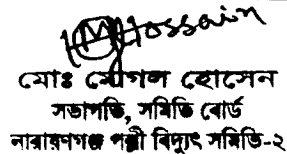 Hossain
মোঃ মোগল হোসেন
সভাপতি, সমিতি বোর্ড
নারায়ণগঞ্জ পল্লী বিদ্যুৎ সমিতি-২